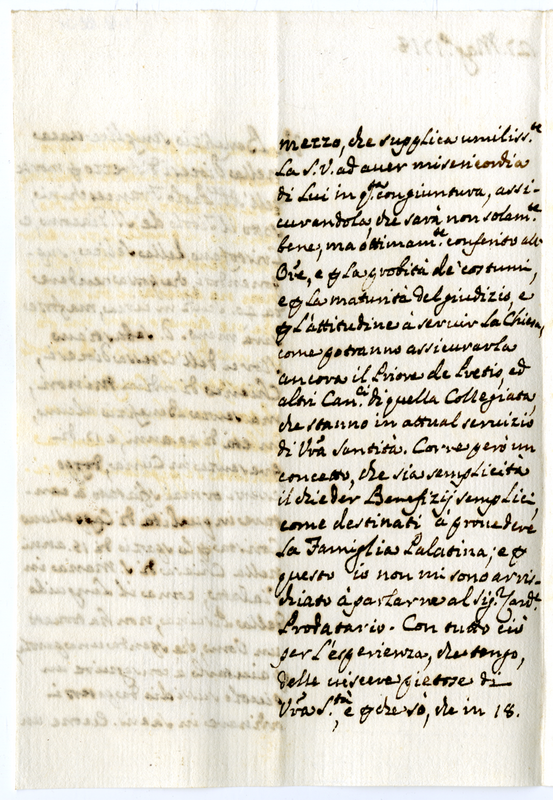 mezzo, che supplica umiliss.te
La S.V. ad aver misericordia
di Lui in q.ta congiuntura, assi-
curandola, che sarà non solam.te
bene, ma ottimam.te conferito all'
Ore, e p La probità de' costumi,
e p La maturità del giudizio, e
p L'attitudine à servir La Chiesa,
come potranno assicurarla
ancora il Priore de Pretis, ed
altri Can.ci di quella Collegiata,
che stanno in attual servizio
di Vra Santità. Corre però un
concetto, che sia semplicità
il chieder Benefizij semplici,
come destinati à provedere
La Famiglia Palatina; e p
questo io non mi sono arris-
chiato à parlarne al Sig.r Card.e
Prodatario. Con tutto ciò
per L'esperienza, che tengo,
delle viscere pietose di
Vra S.tà, e p che sò, che in 18.